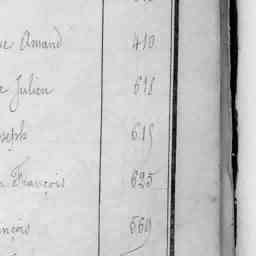 Amand 410
Julien 611
seph 615
François 625
nçois 560